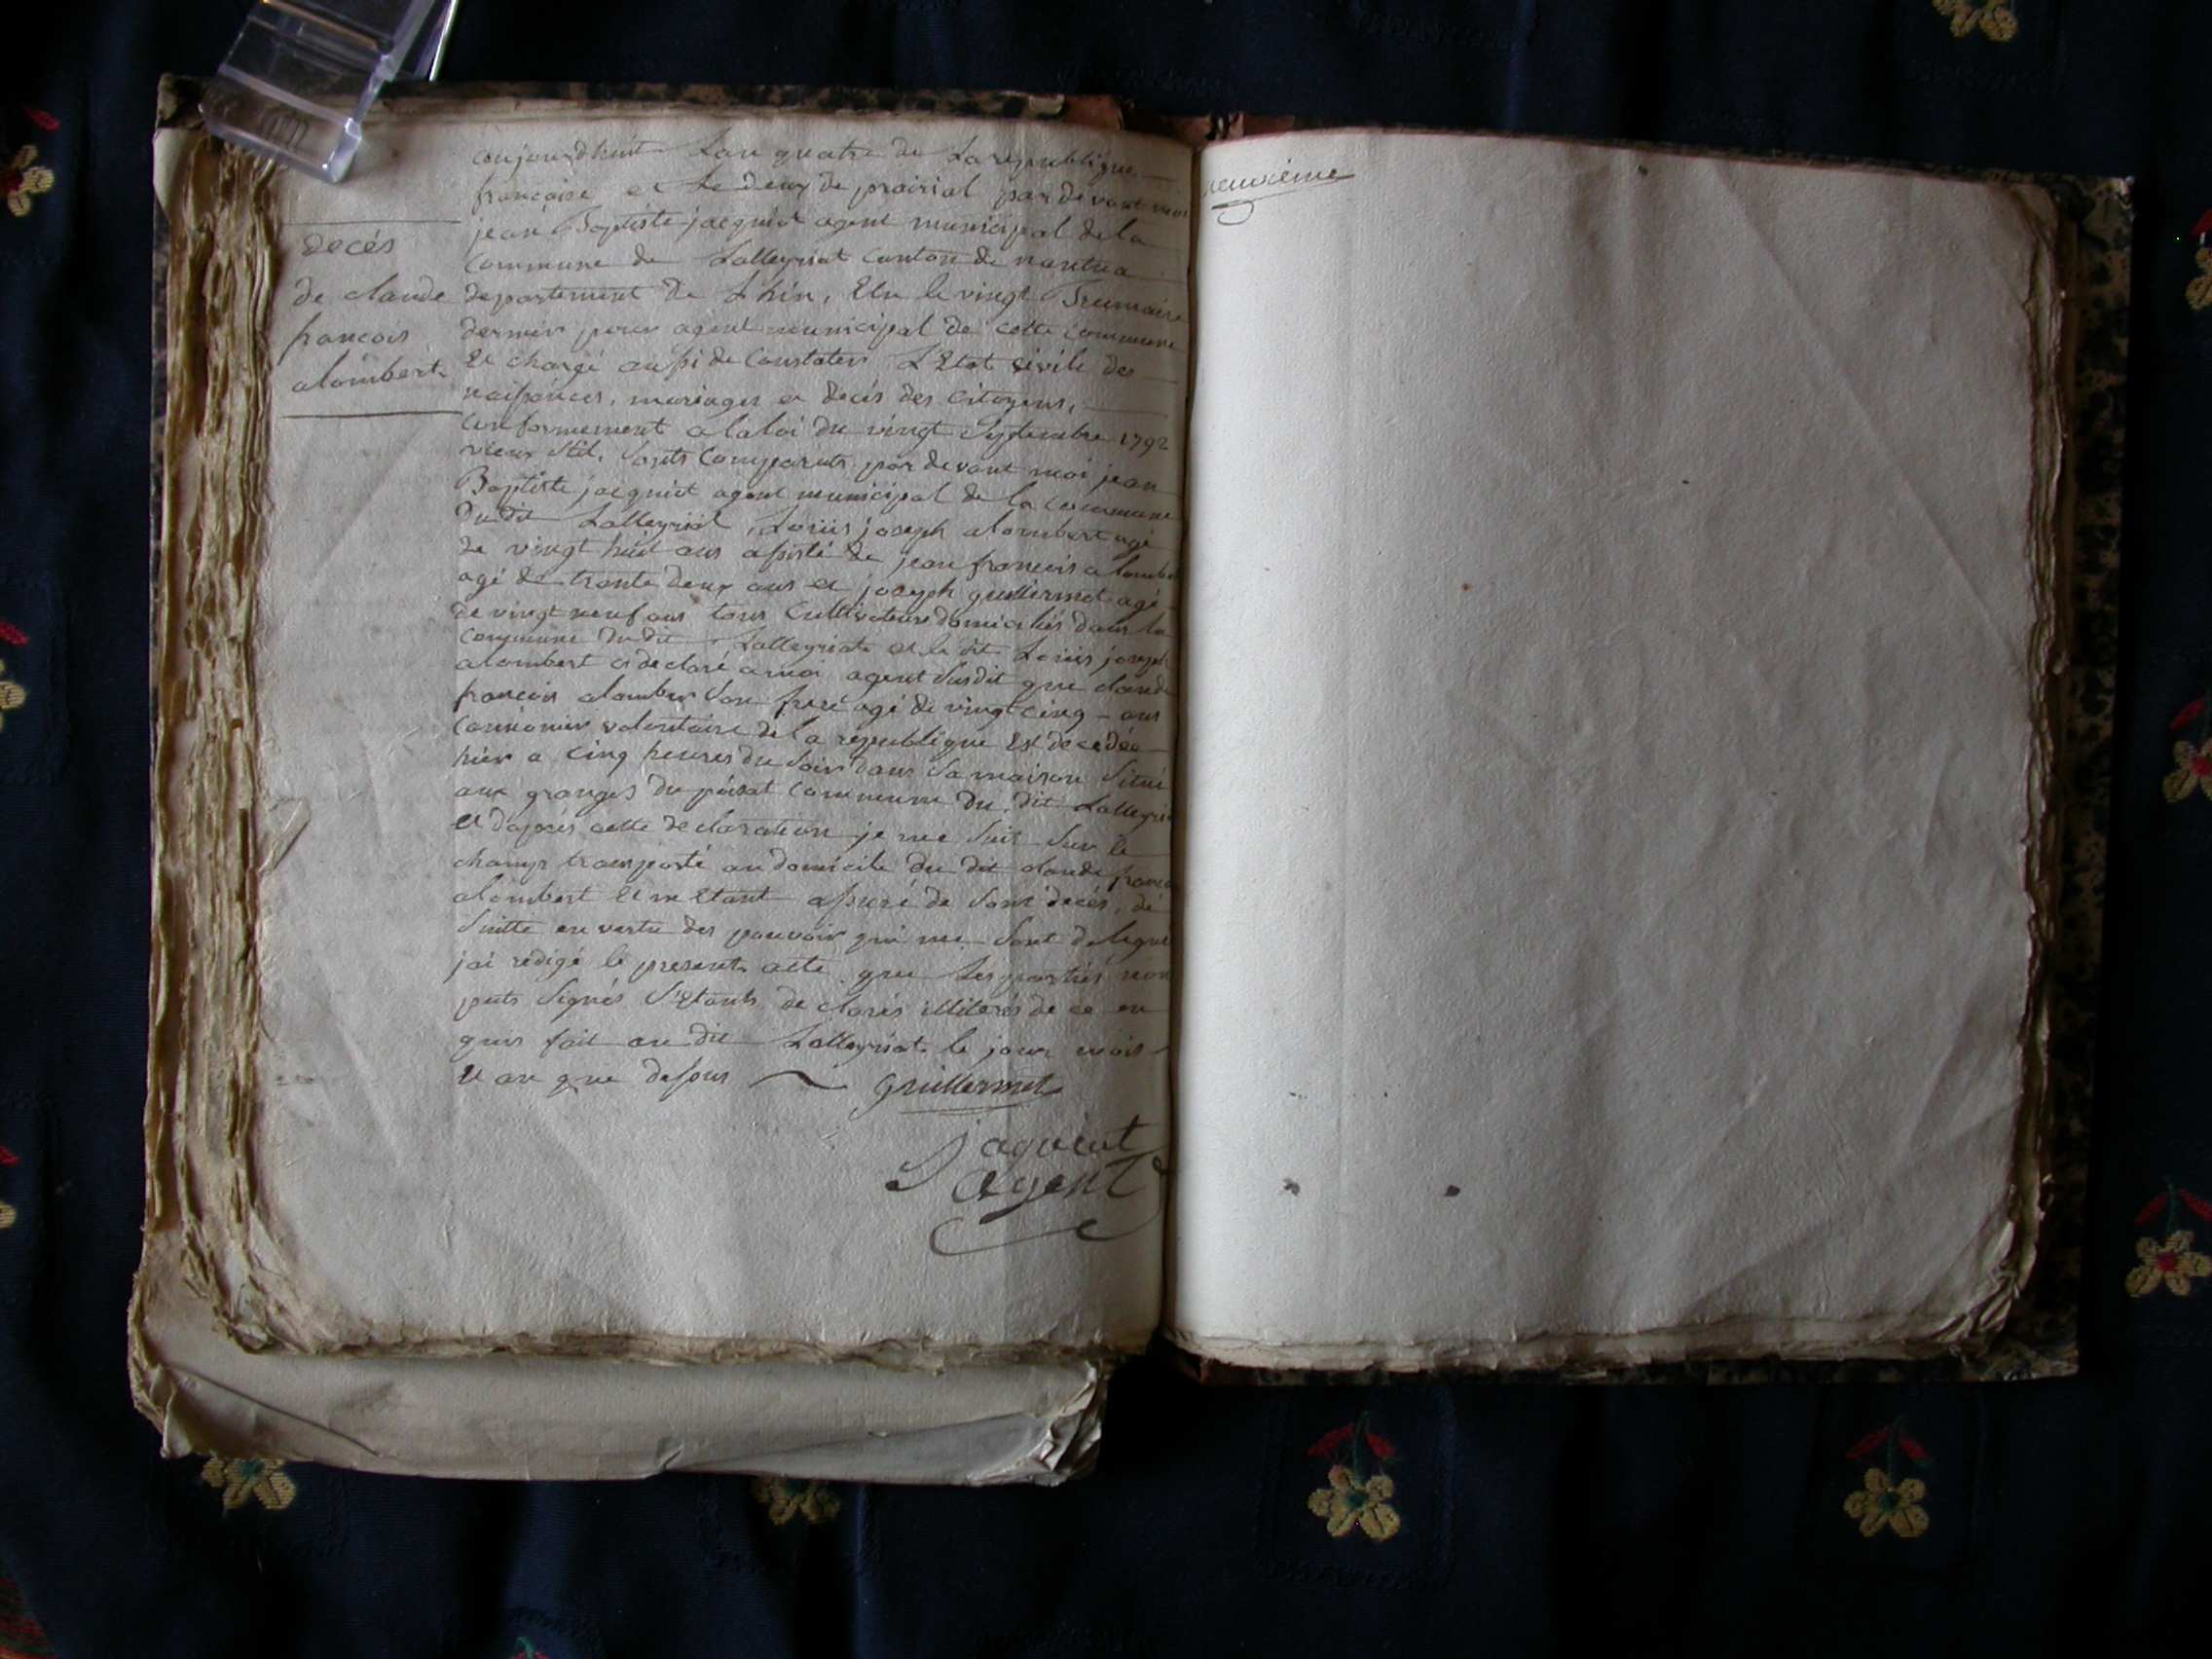 decés
de claude
francois
alombert
aujourdhuit Lan quatre de La republique
francaise et Le deux de prairial par devant moi
jean Baptiste jacquiot agent municipal de la
commune de Lalleyriat canton de nantua
departement de Lhin, Elu le vingt Brumaire
dernier pour agent municipal de cette commune
Et chargé aussi de constater L'Etat civile des
naissances, mariages et decés des citoyens,
conformement a la loi du vingt Septembre 1792
vieux stil, sonts comparuts par devant moi jean
Baptiste jacquiot agent municipal de la commune
du dit Lalleyriat, Loüis joseph alombert agé
de vingt huit ans assisté de jean francois alombert
agé de trante deux ans et joseph guillermet agé
de vingt neuf ans tous cultivateurs domiciliés dans la
commune du dit Lalleyriat et le dit Loüis joseph
alombert a declaré a moi agent susdit que claude
francois alomber son frere agé de vingt cinq ans
cannonier volontaire de la republique Est decedée
hier a cinq heures du soir dans sa maison situé
aux granges du poisat commune du dit Lalleyriat
et daprés cette declaration je me suit sur le
champs transporté au domicile du dit claude francois
alombert Et m Etant assuré de sont decés, de
suitte en vertu des pouvoir qui me sont delegué
jai redigé le present acte que les parties non
puts signés s'Etants declarés illiterés de ce en
quis fait au dit Lalleyriat le jour mois
Et an que dessus Guillermet
jaquiot
agent
neuvieme